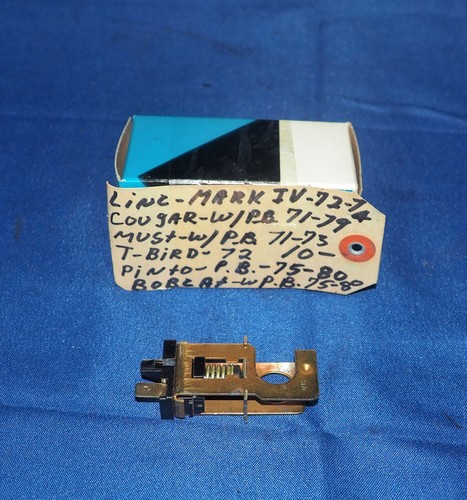 LINC- MARK IV-72-74
COUGAR-W/P.B 71-79
MUST-W/P.B. 71-73
T-BIRD- 72 10-
PINTO- P.B.-75-80
BOBCAT-W P.B. 75-8